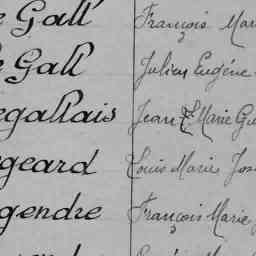 Gall François Mar
Gall Julien Eugène
egallais Jean Marie Gu
geard Louis Marie Jos
gendre François Marie